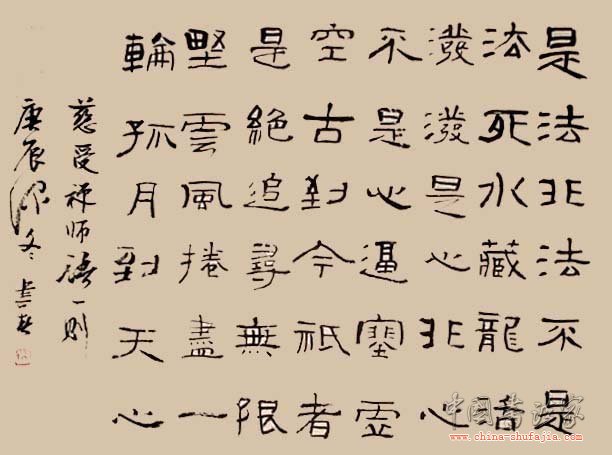 是法非法不是
法死水藏龍活
潑潑是心非心
不是心逼塞虛
空古到今祇者
是絕追尋無限
野雲風捲盡一
輪孤月到天心
慈受禅師語一則
庚辰深冬
中国書法家
www.china-shufajia.com